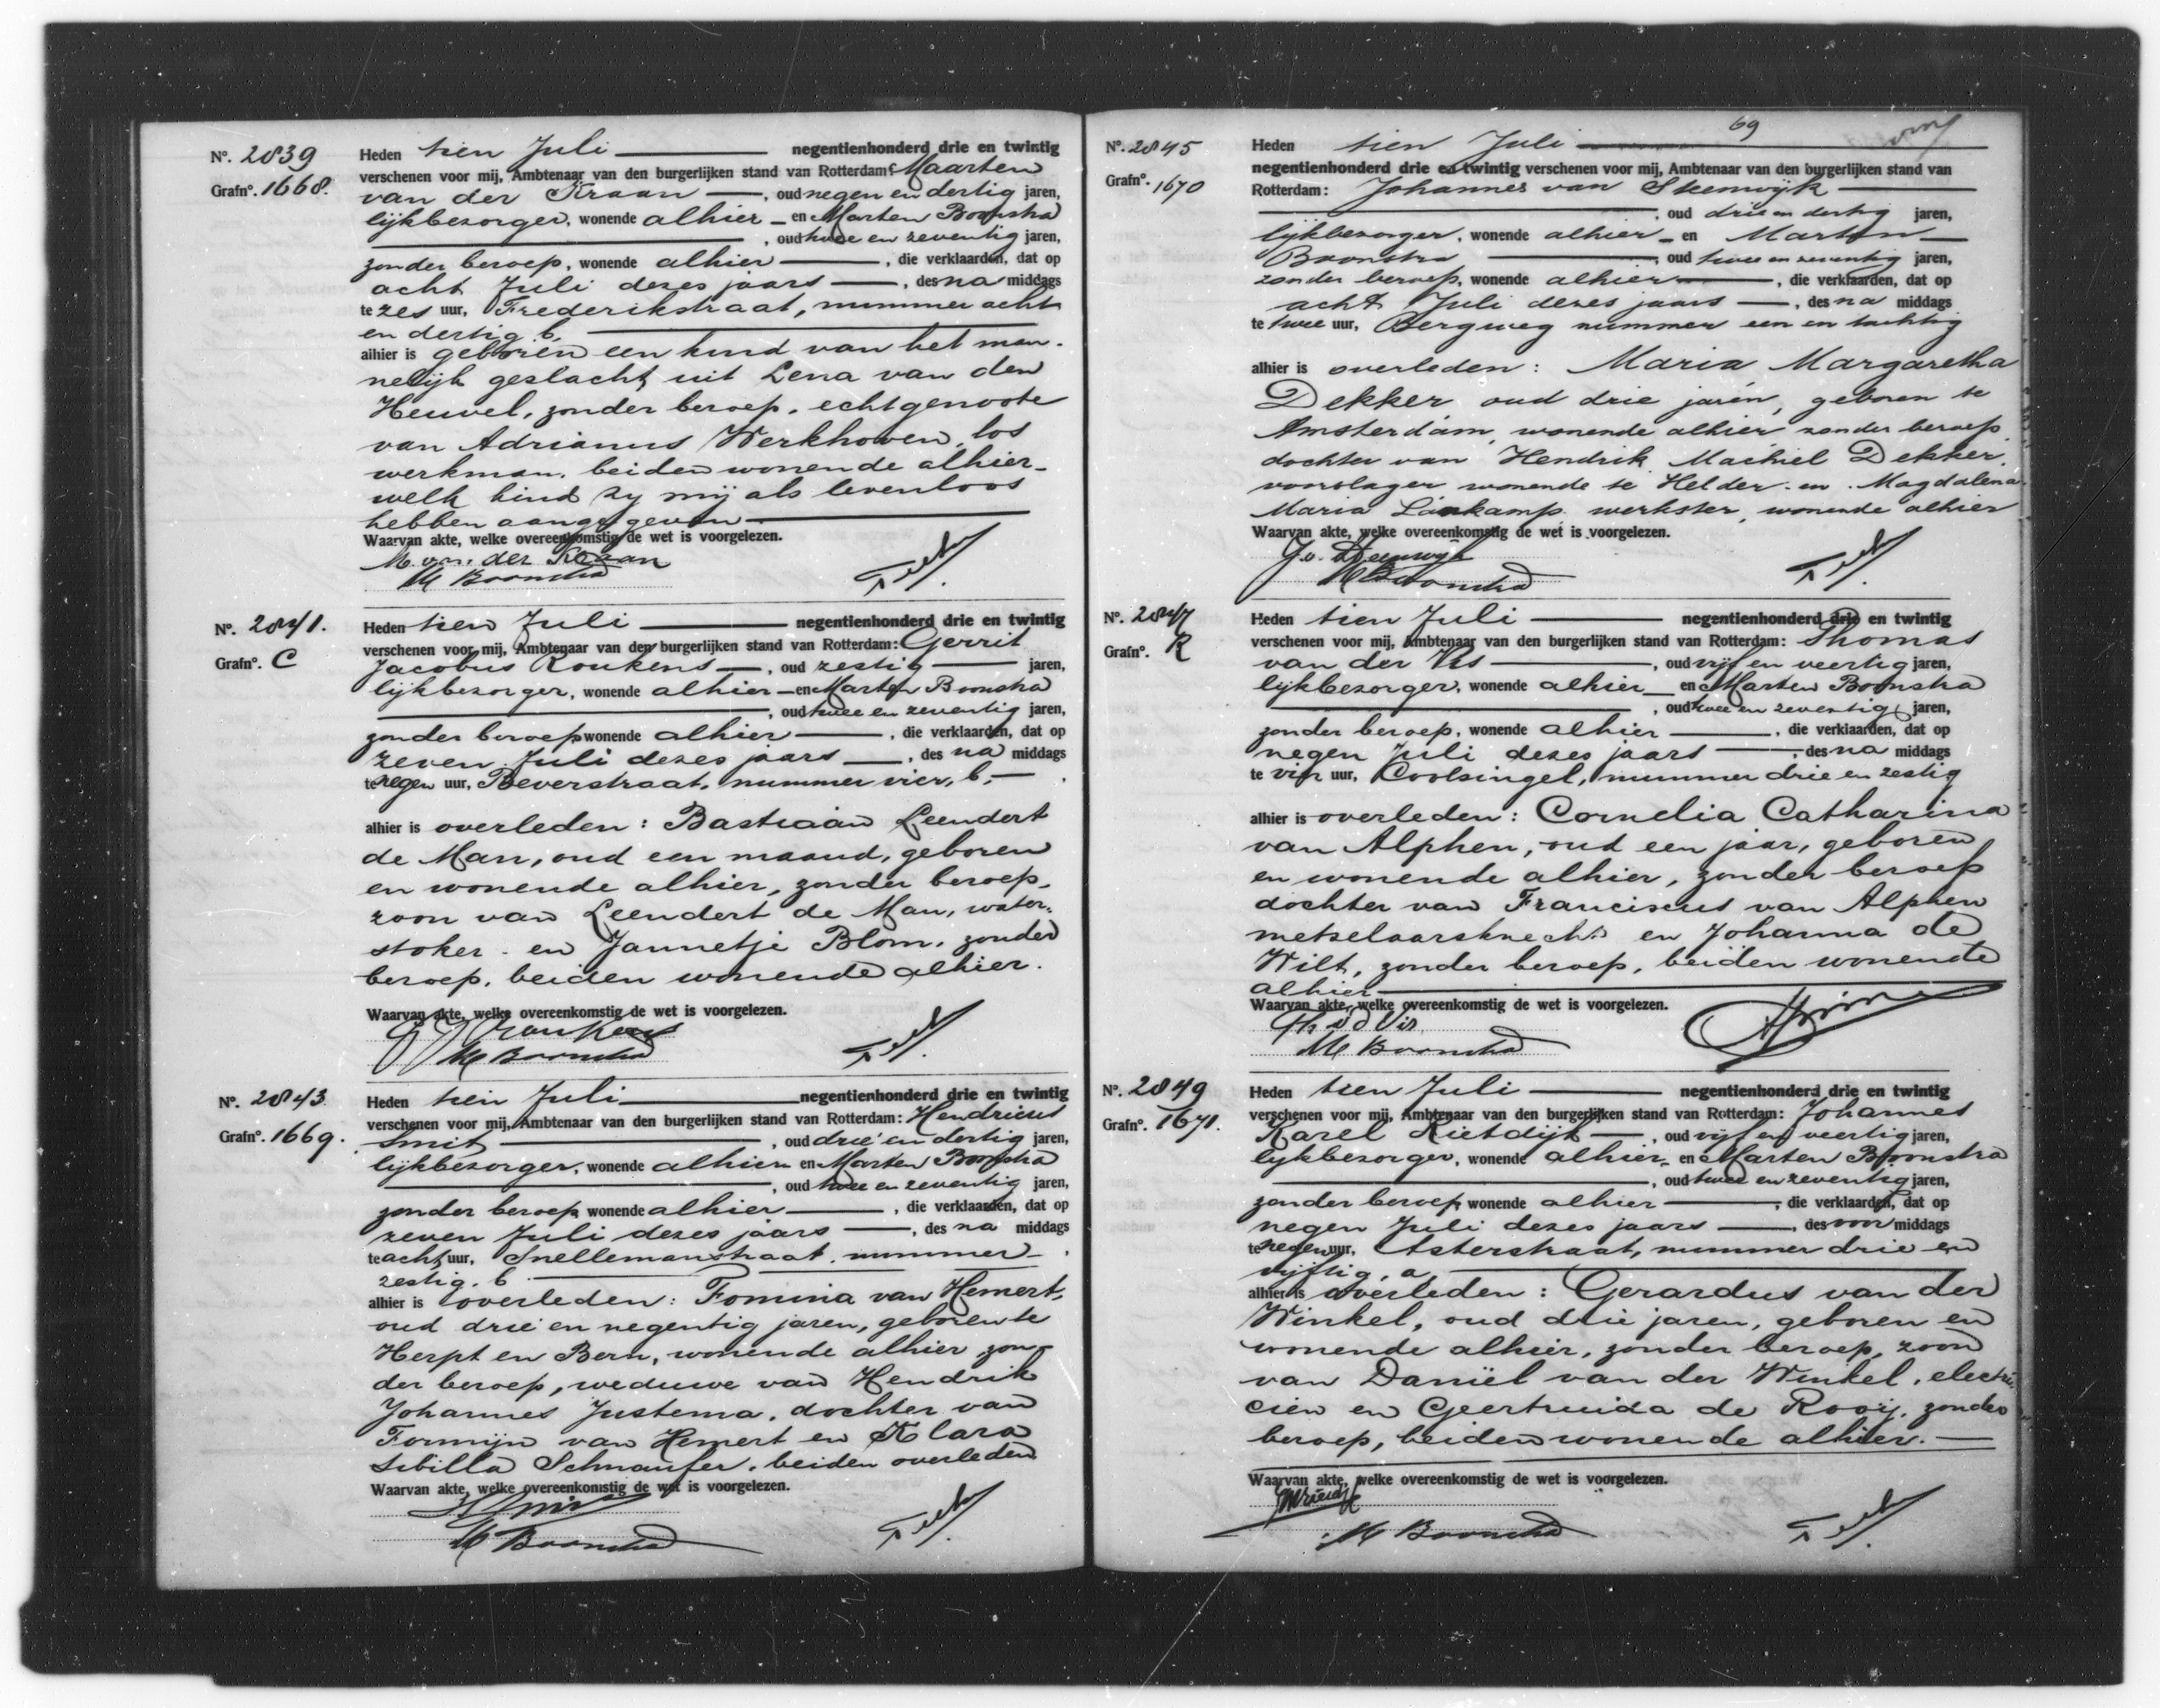 Nº. 2839
Grafnº. 1668.
Heden tien Juli negentienhonderd drie en twintig
verschenen voor mij, Ambtenaar van den burgerlijken stand van Rotterdam: Maarten
van der Kraan, oud negen en dertig jaren,
lijkbezorger, wonende alhier en Marten Boonstra
, oud twee en zeventig jaren,
zonder beroep, wonende alhier, die verklaarden, dat op
acht Juli dezes jaars, des na middags
te zes uur, Frederikstraat, nummer acht
en dertig b,
alhier is geboren een kind van het man-
nelijk geslacht, uit Lena van den
Heuvel, zonder beroep, echtgenoote
van Adrianus Werkhoven, los
werkman, beiden wonende alhier-
welk kind zij mij als levenloos
hebben aangegeven
Waarvan akte, welke overeenkomstig de wet is voorgelezen.
M. van der Kraan
M Boonstra
Nº. 2841.
Grafnº. C
Heden tien Juli negentienhonderd drie en twintig
verschenen voor mij, Ambtenaar van den burgerlijken stand van Rotterdam: Gerrit
Jacobus Roukens, oud zestig jaren,
lijkbezorger, wonende alhier en Marten Boonstra
, oud twee en zeventig jaren,
zonder beroep wonende alhier, die verklaarden, dat op
zeven Juli dezes jaars, des na middags
te negen uur, Beverstraat, nummer vier, b,
alhier is overleden: Bastiaan Leendert
de Man, oud een maand, geboren
en wonende alhier, zonder beroep,
zoon van Leendert de Man, water-
stoker en Jannetje Blom, zonder
beroep, beiden wonende alhier.
Waarvan akte, welke overeenkomstig de wet is voorgelezen.
G J Roukens
M Boonstra
Nº. 2843.
Grafnº. 1669.
Heden tien Juli negentienhonderd drie en twintig
verschenen voor mij, Ambtenaar van den burgerlijken stand van Rotterdam: Hendricus
Smit, oud drie en dertig jaren,
lijkbezorger, wonende alhier en Marten Boonstra
, oud twee en zeventig jaren,
zonder beroep wonende alhier, die verklaarden, dat op
zeven Juli dezes jaars, des na middags
te acht uur, Snellemanstraat, nummer
zestig, b
alhier is overleden: Fomina van Hemert,
oud drie en negentig jaren, geboren te
Herpt en Bern, wonende alhier, zon-
der beroep, weduwe van Hendrik
Johannes Justema, dochter van
Formijn van Hemert en Klara
Sibilla Schnaufer, beiden overleden
Waarvan akte, welke overeenkomstig de wet is voorgelezen.
H Smit
M Boonstra
69
Nº. 2845
Grafnº. 1670
Heden tien Juli
negentienhonderd drie en twintig verschenen voor mij, Ambtenaar van den burgerlijken stand van
Rotterdam: Johannes van Steenwijk
, oud drie en dertig jaren,
lijkbezorger, wonende alhier en Marten
Boonstra, oud twee en zeventig jaren,
zonder beroep, wonende alhier, die verklaarden, dat op
acht Juli dezes jaars, des na middags
te twee uur, Bergweg nummer een en tachtig
alhier is overleden: Maria Margaretha
Dekker, oud drie jaren, geboren te
Amsterdam, wonende alhier zonder beroep,
dochter van Hendrik Machiel Dekker,
voorslager wonende te Helder en Magdalena
Maria Lankamp werkster, wonende alhier
Waarvan akte, welke overeenkomstig de wet is voorgelezen.
J v. Steenwijk
M Boonstra
Nº. 2847
Grafnº. R
Heden tien Juli negentienhonderd drie en twintig
verschenen voor mij, Ambtenaar van den burgerlijken stand van Rotterdam: Thomas
van der Vis, oud vijf en veertig jaren,
lijkbezorger, wonende alhier en Marten Boonstra
, oud twee en zeventig jaren,
zonder beroep, wonende alhier, die verklaarden, dat op
negen Juli dezes jaars, des na middags
te vijf uur, Coolsingel, nummer drie en zestig
alhier is overleden: Cornelia Catharina
van Alphen, oud een jaar, geboren
en wonende alhier, zonder beroep
dochter van Franciscus van Alphen
metselaarsknecht en Johanna de
Wilt, zonder beroep, beiden wonende
alhier
Waarvan akte, welke overeenkomstig de wet is voorgelezen.
Th v d Vis
M Boonstra
Nº. 2849
Grafnº. 1671.
Heden tien Juli negentienhonderd drie en twintig
verschenen voor mij, Ambtenaar van den burgerlijken stand van Rotterdam: Johannes
Karel Rietdijk, oud vijf en veertig jaren,
lijkbezorger, wonende alhier, en Marten Boonstra
, oud twee en zeventig jaren,
zonder beroep wonende alhier, die verklaarden, dat op
negen Juli dezes jaars, des voor middags
te negen uur, Asterstraat, nummer drie en
vijftig, a,
alhier is overleden: Gerardus van der
Winkel, oud drie jaren, geboren en
wonende alhier, zonder beroep, zoon
van Daniël van der Winkel, electri-
cien en Geertruida de Rooij, zonder
beroep, beiden wonende alhier.
Waarvan akte, welke overeenkomstig de wet is voorgelezen.
M Boonstra